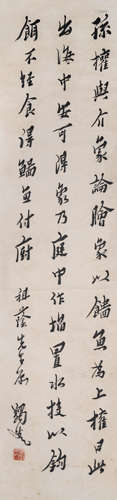 孫權與介象論膾象以鯔魚為上權曰此
出海中安可得象乃庭中作埳置水投以鉤
餌不經食得鯔魚付廚
祖蔭先生屬